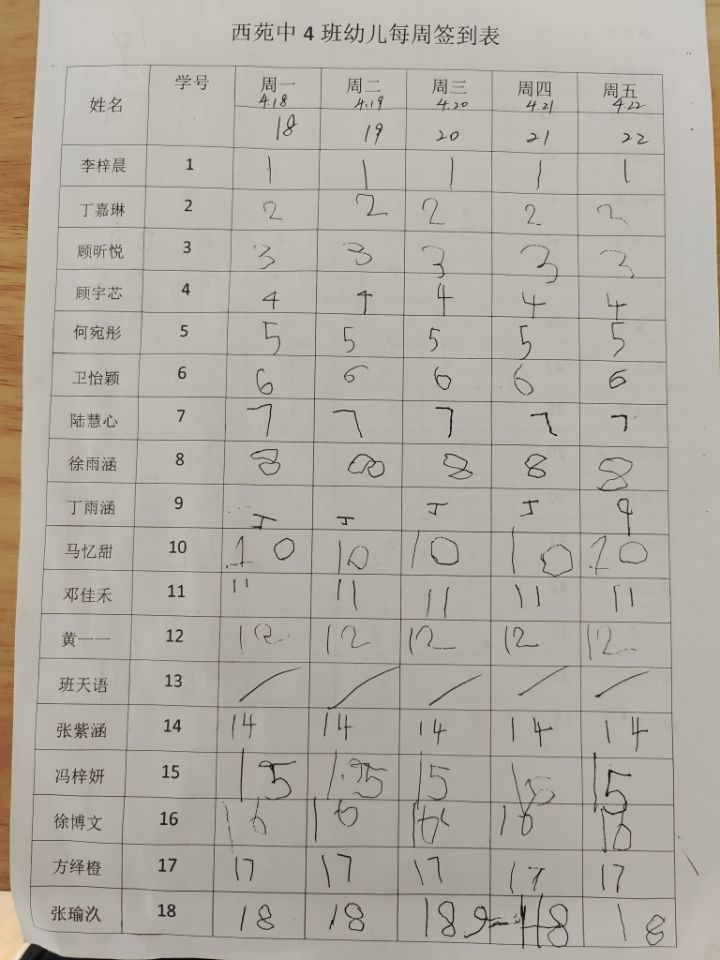 西苑中 4 班幼儿每周签到表
姓名 学号 周一 周二 周三 周四 周五
4.18 4.19 4.20 4.21 4.22
18 19 20 21 22
李梓晨 1 1 1 1 1 1
丁嘉琳 2 2 2 2 2 2
顾昕悦 3 3 3 3 3 3
顾宇芯 4 4 4 4 4 4
何宛彤 5 5 5 5 5 5
卫怡颖 6 6 6 6 6 6
陆慧心 7 7 7 7 7 7
徐雨涵 8 8 8 8 8 8
丁雨涵 9 9
马忆甜 10 10 10 10 10 10
邓佳禾 11 11 11 11 11 11
黄一一 12 12 12 12 12 12
班天语 13 / / / / /
张紫涵 14 14 14 14 14 14
冯梓妍 15 15 15 15 15 15
徐博文 16 16 16 16 16 16
方绎橙 17 17 17 17 17 17
张瑜汣 18 18 18 18 18 18